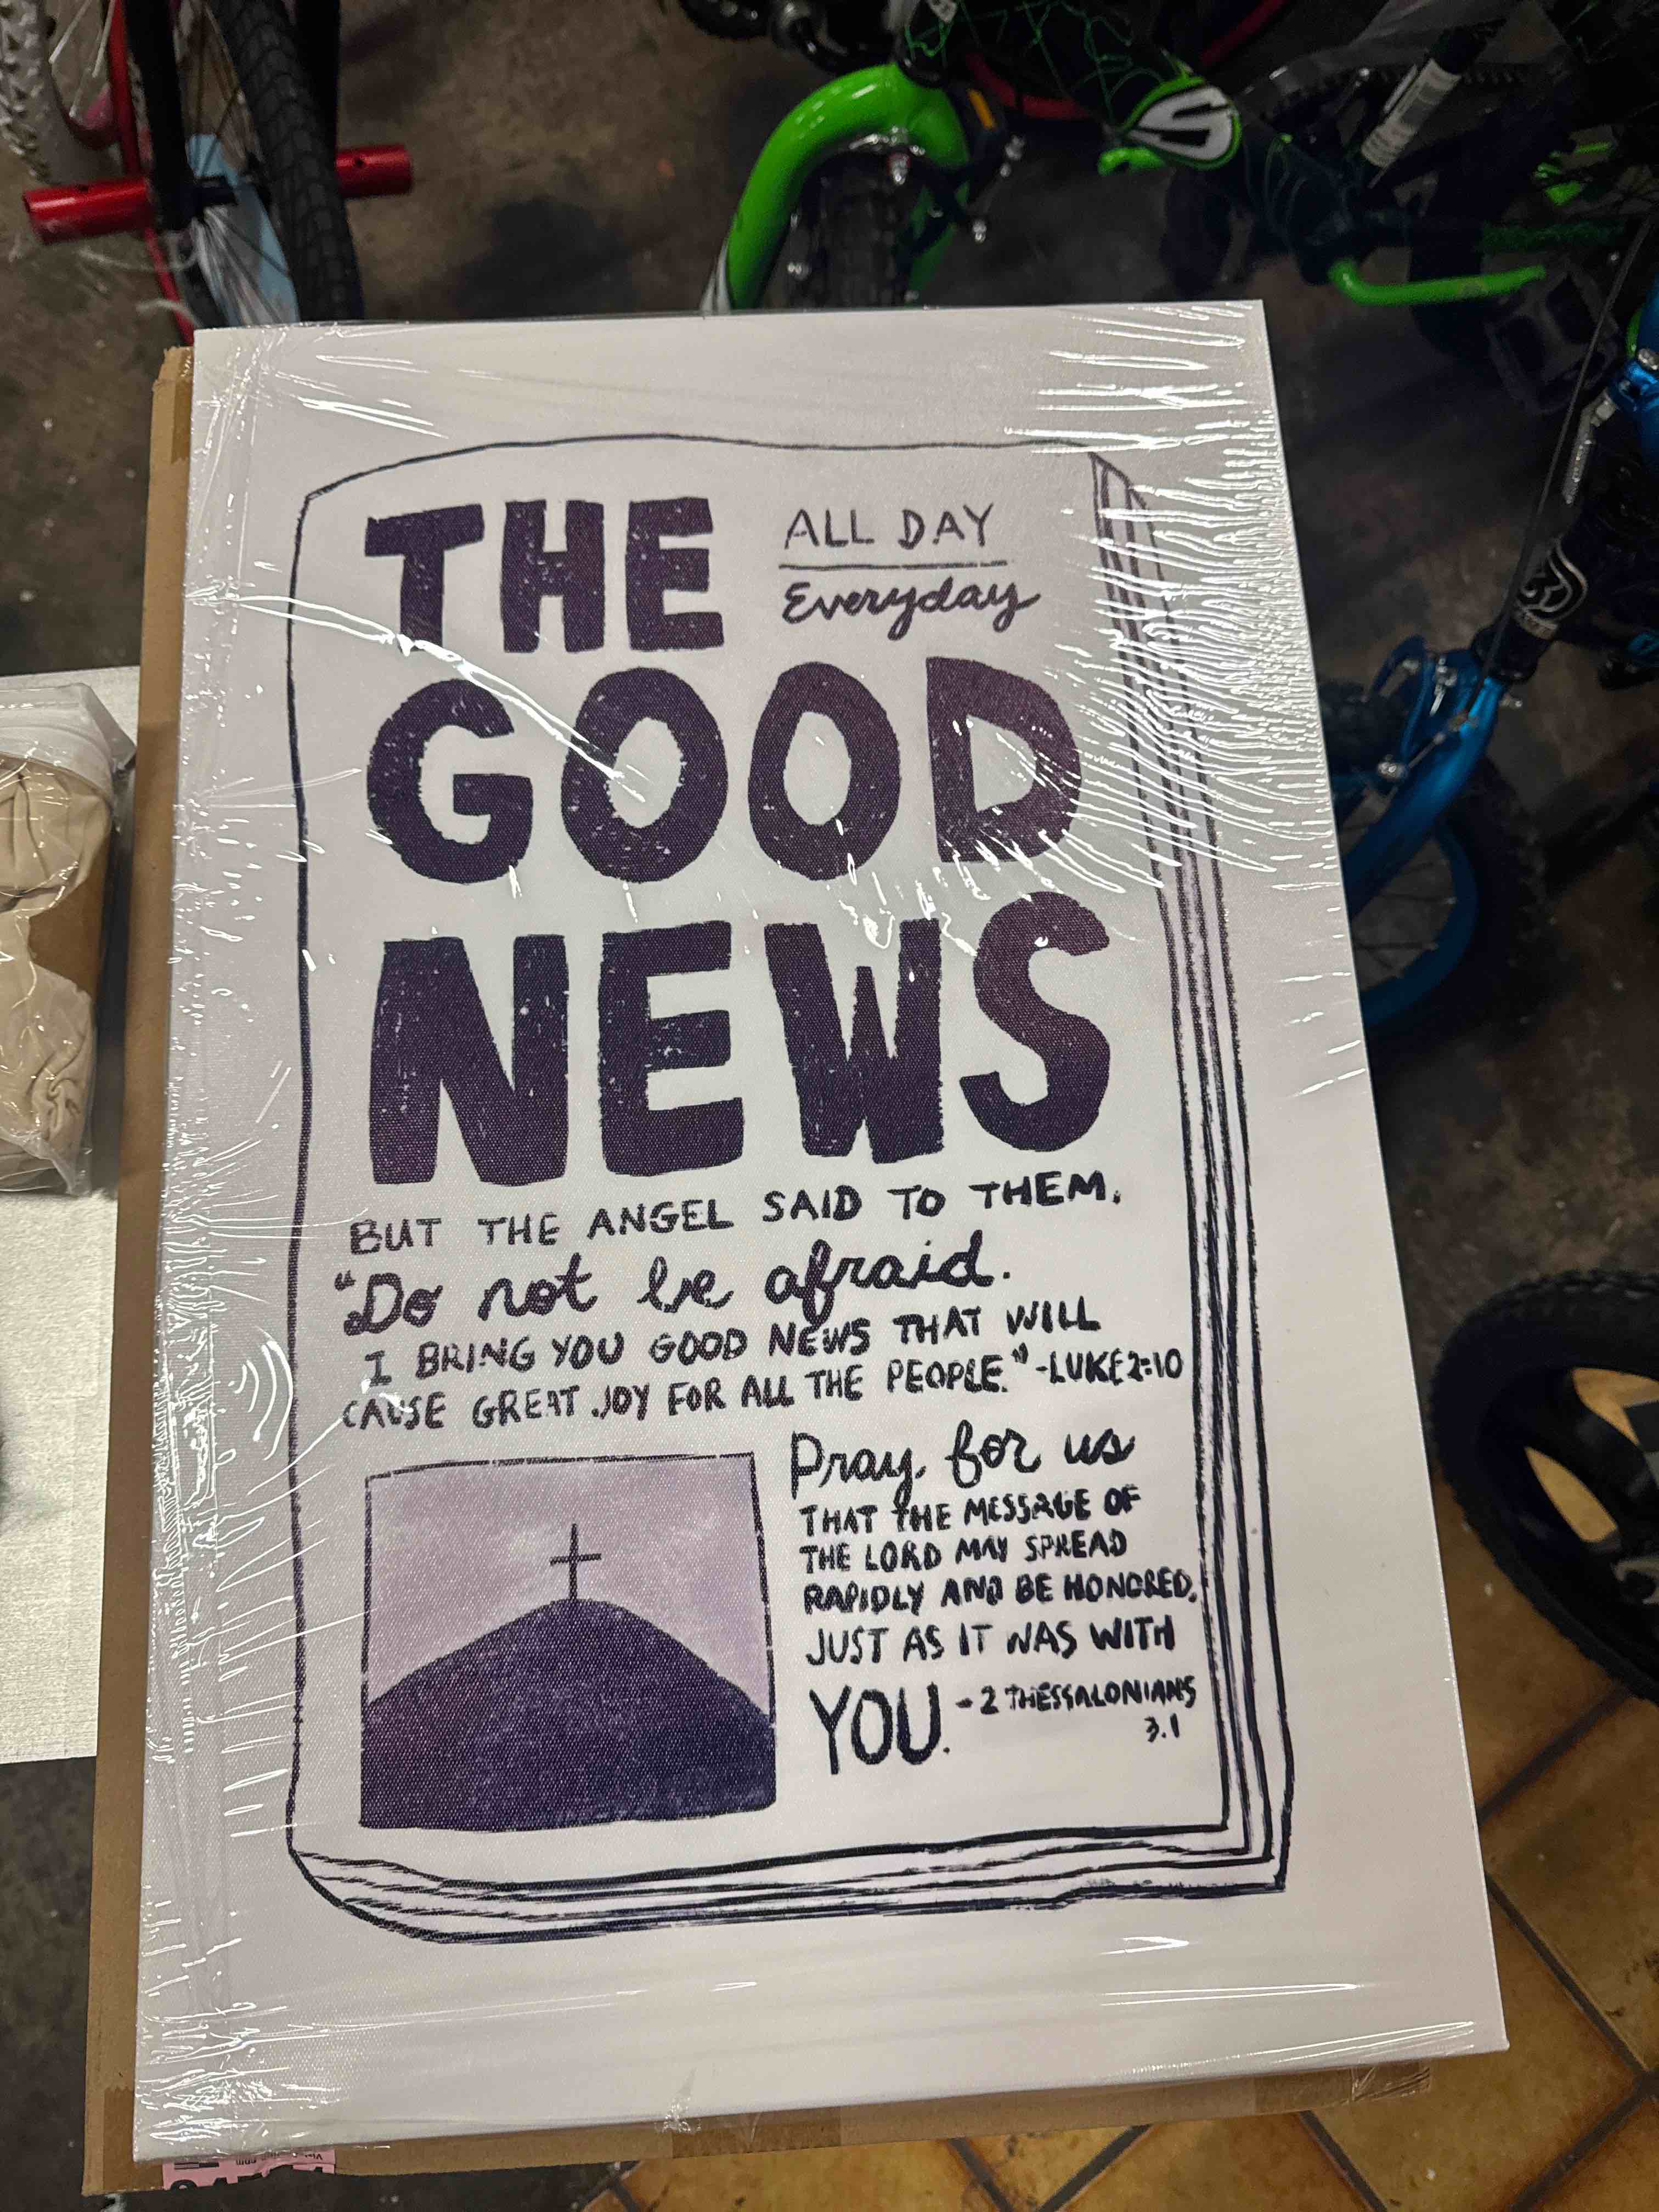 THE
ALL DAY
Everyday
GOOD
NEWS
BUT THE ANGEL SAID TO THEM,
"Do not be afraid.
I BRING YOU GOOD NEWS THAT WILL
CAUSE GREAT JOY FOR ALL THE PEOPLE." -LUKE 2:10
Pray for us
THAT THE MESSAGE OF
THE LORD MAY SPREAD
RAPIDLY AND BE HONORED,
JUST AS IT WAS WITH
YOU. - 2 THESSALONIANS
3.1